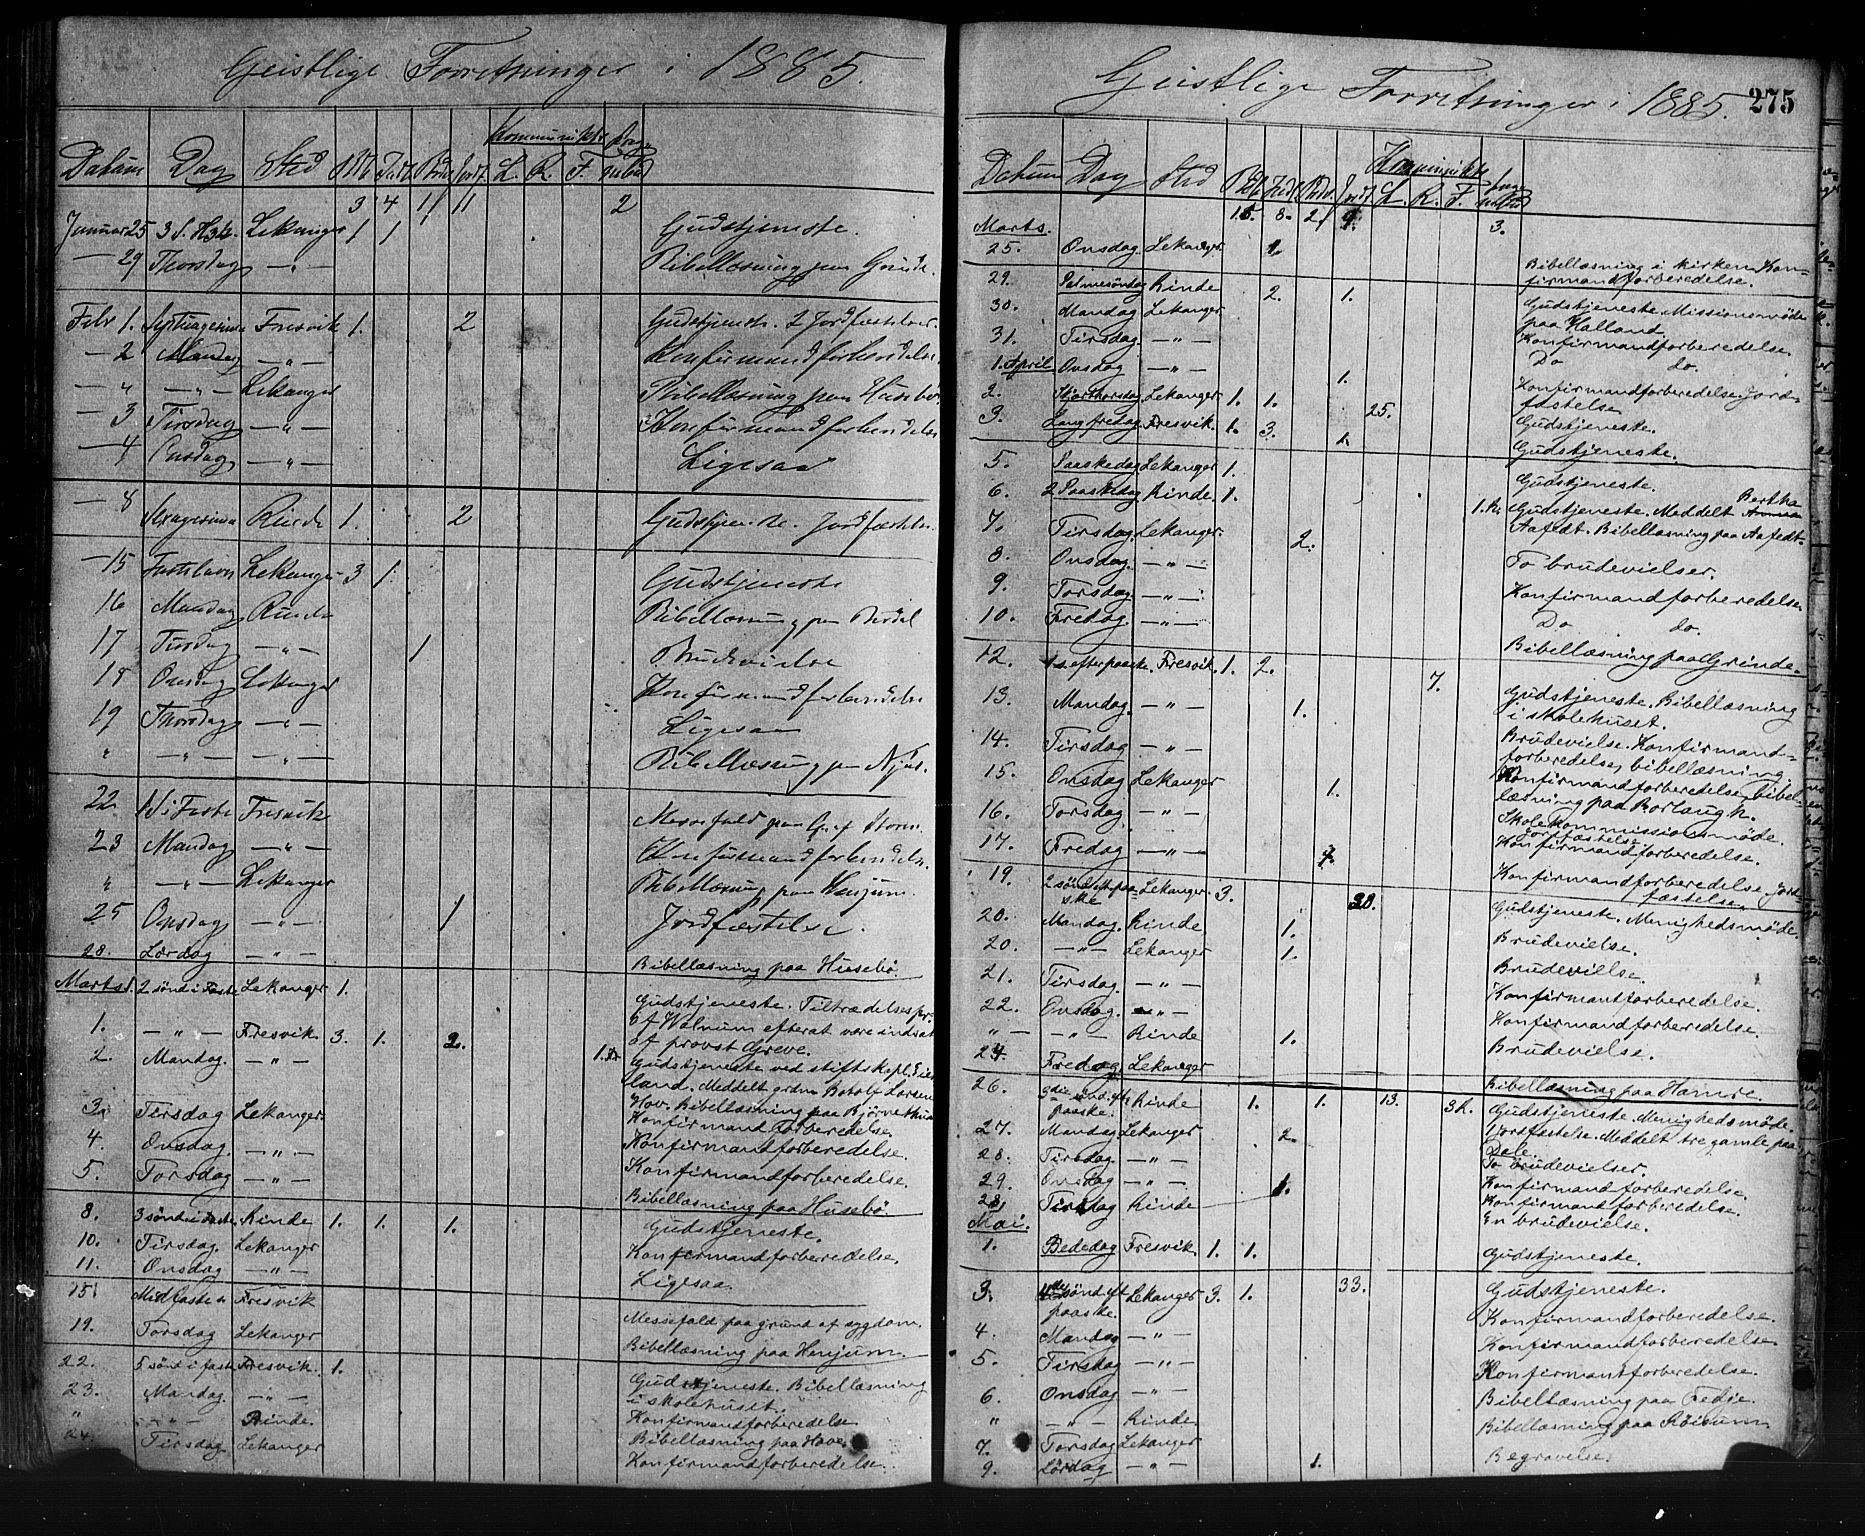 Geistlige Forretninger i 1885.
Datum Dag Sted Kommunikt. L. R. F.
3 4 1 11 2
Januar 25 3 S. H3k. Lekanger 1 1 Gudstjeneste.
— 29 Thorsdag — " — Bibellæsning paa Grinde.
Febr 1. Septuagesima Fresvik 1. 2 Gudstjeneste. 2 Jordfæstelser.
— 2 Mandag — " — Konfirmandforberedelse.
— " — " — Lekanger Bibellæsning paa Husebø
— 3 Tirsdag — " — Konfirmandforberedelse
— 4 Onsdag — " — Ligesaa
— 8 Sexagesima Rinde 1. 2 Gudstjeneste. Jordfæstelse.
— 15 Fastelavn Lekanger 3 1. Gudstjeneste
16 Mandag Rinde Bibellæsning paa
17 Tirsdag — " — 1 Brudevielse
18 Onsdag Lekanger Konfirmandforberedelse
19 Thorsdag — " — Ligesaa
" — " — — " — Bibellæsning paa Njøs.
22 1 S. i Faste Fresvik Messefald paa Gr. af Storm.
23 Mandag — " — Konfirmandforberedelse.
" — " — Lekanger Bibellæsning paa Henjum.
25 Onsdag — " — 1 Jordfæstelse.
28. Lørdag — " — Bibellæsning paa Husebø.
Marts 1. 2 sønd i Faste Lekanger 1. Gudstjeneste. Tiltrædelsespr.
af Walnum efterat være indsat
af provst Greve.
1. — " — Fresvik 3. 1. 2. Gudstjeneste ved stiftskapl.
2. Mandag. — " — 1. land. Meddelt grdm Botolf Larsen
Hov. Bibellæsning paa
3. Tirsdag Lekanger. Konfirmand forberedelse.
4. Onsdag. — " — Konfirmandforberedelse.
5. Torsdag — " — Konfirmandforberedelse.
Bibellæsning paa Husebø.
8. 3 sønd i faste Rinde 1. 1. 1. Gudstjeneste.
10. Tirsdag. Lekanger Konfirmandforberedelse.
11. Onsdag — " — Ligesaa.
15. Midfaste s. Fresvik Messefald paa grund af sygdom.
19. Torsdag Lekanger Bibellæsning paa Henjum.
22. 5 sønd i faste Fresvik. 1. Gudstjeneste. Bibellæsning
i skolehuset.
23. Mandag. — " — Konfirmandforberedelse
" — " — Rinde. Bibellæsning paa Hove.
24. Tirsdag Lekanger Konfirmandforberedelse.
Geistlige Forretninger i 1885. 275
Datum Dag Sted Kommunikt. L. R. F.
15. 8. 2 3.
Marts.
25. Onsdag Lekanger. 1. Bibellæsning i kirken. Kon-
firmandforberedelse.
29. Palmesøndag Rinde 2. 1. Gudstjeneste. Missionsmøde
paa Halland.
30. Mandag Lekanger. Konfirmandforberedelse.
31. Tirsdag — " — Do do.
1. April Onsdag — " — 1. Konfirmandforberedelse. Jord-
fæstelse
2. Skjærthorsdag Lekanger. 1. 1. 25. Gudstjeneste.
3. Langfredag. Fresvik. 1. 3. 1. Gudstjeneste.
5. Paaskedag Lekanger 1. Gudstjeneste.
6. 2 Paaskedag Rinde. 1. Gudstjeneste. Meddelt Bertha
Aafedt. Bibellæsning paa Aafedt.
7. Tirsdag. Lekanger. 2. To brudevielser.
8. Onsdag. — " — Konfirmandforberedelse.
9. Torsdag — " — Do do.
10. Fredag. — " — Bibellæsning paa Grinde.
12. 1 s. efter paaske. Fresvik. 1. 2. 7. Gudstjeneste. Bibellæsning
i skolehuset.
13. Mandag. — " — 1. Brudevielse. Konfirmand-
forberedelse, bibellæsning.
14. Tirsdag — " — Konfirmandforberedelse, bibel-
læsning paa Borlaug h.
15. Onsdag Lekanger 1. Skolekommissionsmøde.
Jordfæstelse.
16. Torsdag — " — Konfirmandforberedelse.
17. Fredag — " — Konfirmandforberedelse. Jord-
fæstelse.
19. 2 sønd eft paa- Lekanger. 3. 20. Gudstjeneste. Menighedsmøde.
ske
20. Mandag. Rinde 1. Brudevielse.
20. — " — Lekanger 1. Brudevielse.
21. Tirsdag. — " — Konfirmantforberedelse.
22. Onsdag. — " — Konfirmandforberedelse.
" — — " — Rinde 1. Brudevielse.
24. Fredag Lekanger. Bibellæsning paa Hamre.
26. 3die sønd. eft. Rinde 1. 1. 13. Gudstjeneste. Menighedsmøde.
paaske. Jordfæstelse. Meddelt tre gamle paa
Dale.
27. Mandag Lekanger 2. To brudevielser.
28. Tirsdag — " — Konfirmandforberedelse.
29. Onsdag — " — Konfirmandforberedelse.
28. Tirsdag Rinde 1. En brudevielse.
Mai.
1. Bededag Fresvik. 1. 1. Gudstjeneste.
3. 4de sønd eft Lekanger 3. 1. 33. Gudstjeneste.
paaske.
4. Mandag — " — Konfirmandforberedelse.
5. Tirsdag — " — Konfirmandforberedelse.
6. Onsdag — " — Konfirmantforberedelse.
" — " — Rinde. Bibellæsning paa Fedje.
7. Torsdag Lekanger Bibellæsning paa
9. Lørdag — " — 1. Begravelse.